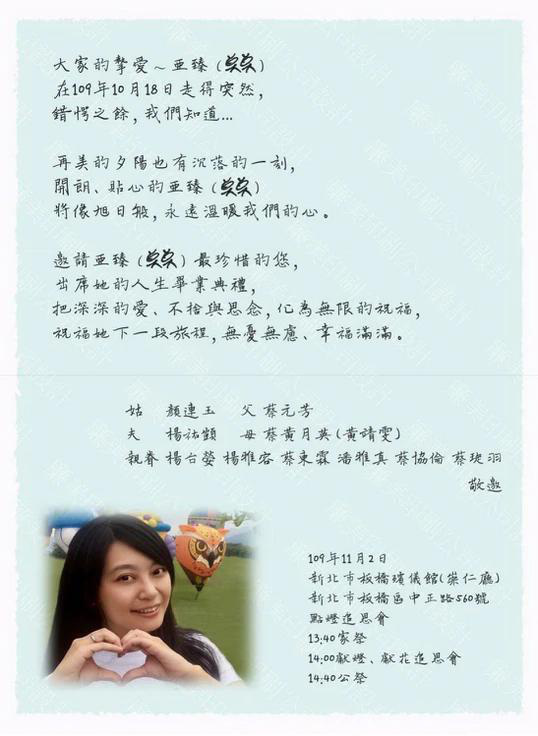 大家的摯愛～亜臻（奀奀）
在109年10月18日走得突然，
錯愕之餘，我們知道…
再美的夕陽也有沉落的一刻，
開朗、貼心的亜臻（奀奀）
將像旭日般，永遠溫暖我們的心。
邀請亜臻（奀奀）最珍惜的您，
出席她的人生畢業典禮，
把深深的愛、不捨與思念，化為無限的祝福，
祝福她下一段旅程，無憂無慮、幸福滿滿。
姑 顏連玉 父 蔡元芳
夫 楊祐顗 母 蔡黃月英（黃靖雯）
親眷 楊台螢 楊雅容 蔡東霖 潘雅真 蔡協倫 蔡琰羽
敬邀
109年11月2日
新北市板橋殯儀館（崇仁廳）
新北市板橋區中正路560號
點燈追思會
13:40家祭
14:00獻燈、獻花追思會
14:40公祭